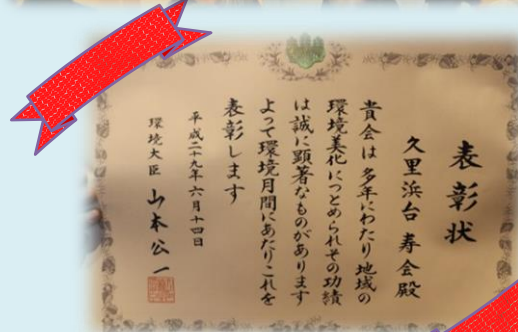 表彰状
久里浜台 寿会殿
貴会は多年にわたり地域の
環境美化につとめられその功績
は誠に顕著なものがあります
よって環境月間にあたりこれを
表彰します
平成二十九年六月十四日
環境大臣 山本公一